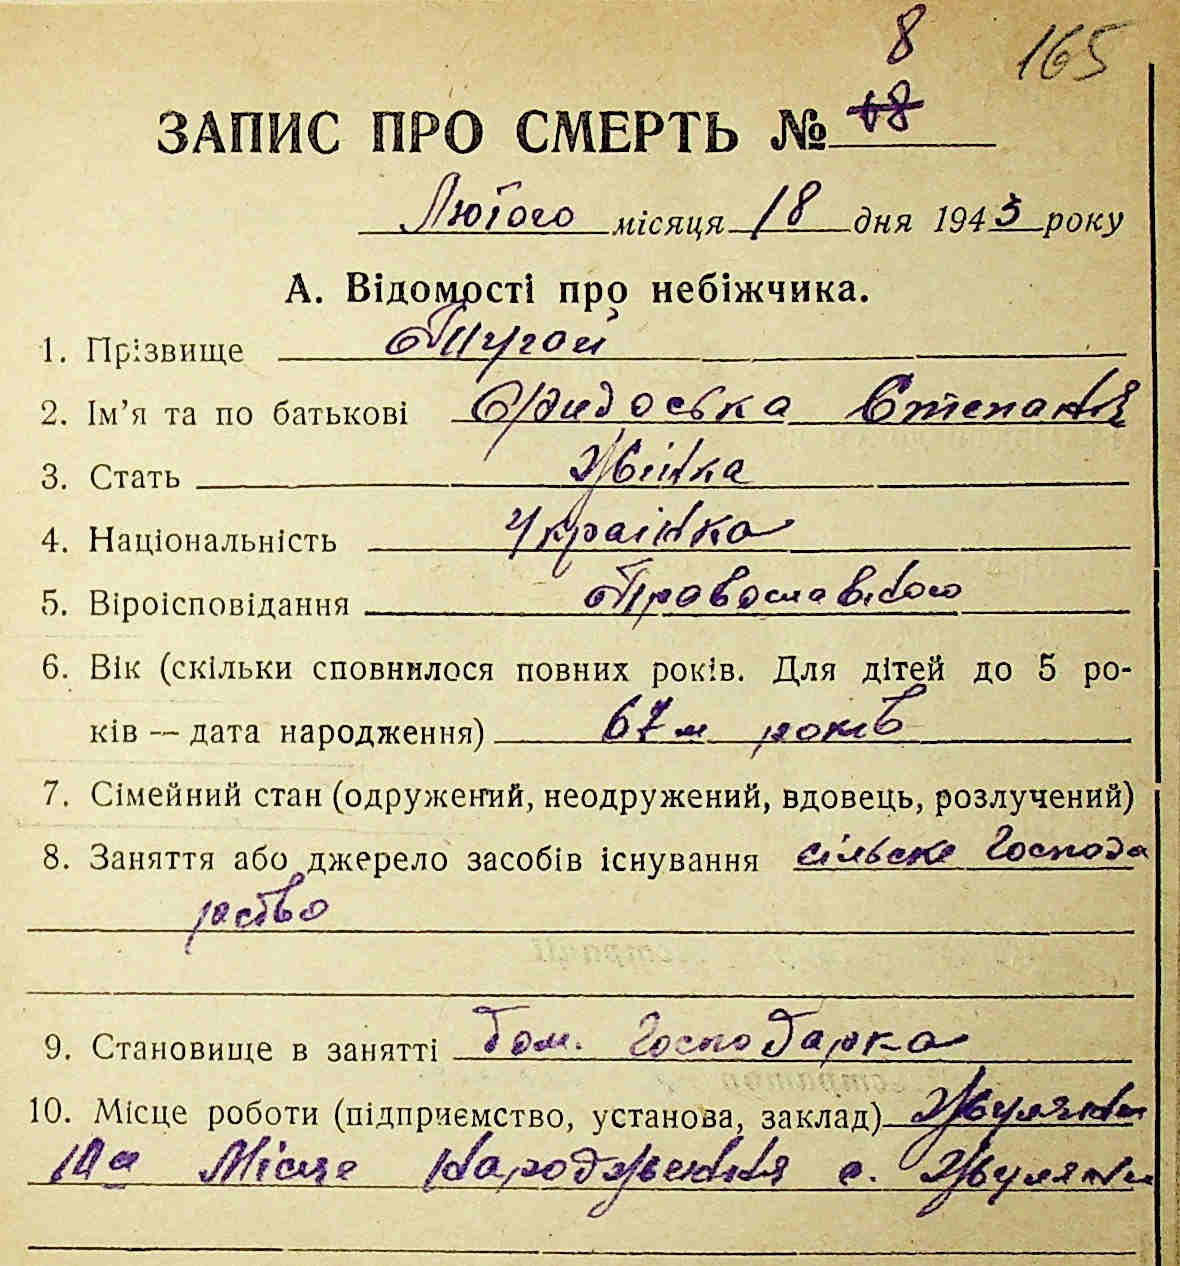 8 165
ЗАПИС ПРО СМЕРТЬ № 18
Лютого місяця 18 дня 1943 року
А. Відомості про небіжчика.
1. Прізвище Пугой
2. Ім’я та по батькові Фидоська Степанія
3. Стать Жінка
4. Національність Украінка
5. Віроісповідання Православного
6. Вік (скільки сповнилося повних років. Для дітей до 5 ро-
ків — дата народження) 67м років
7. Сімейний стан (одружений, неодружений, вдовець, розлучений)
8. Заняття або джерело засобів існування сільске Господа
рство
9. Становище в занятті Дом. Господарка
10. Місце роботи (підприємство, установа, заклад) Жуляни
10а Місце народження с. Жуляни